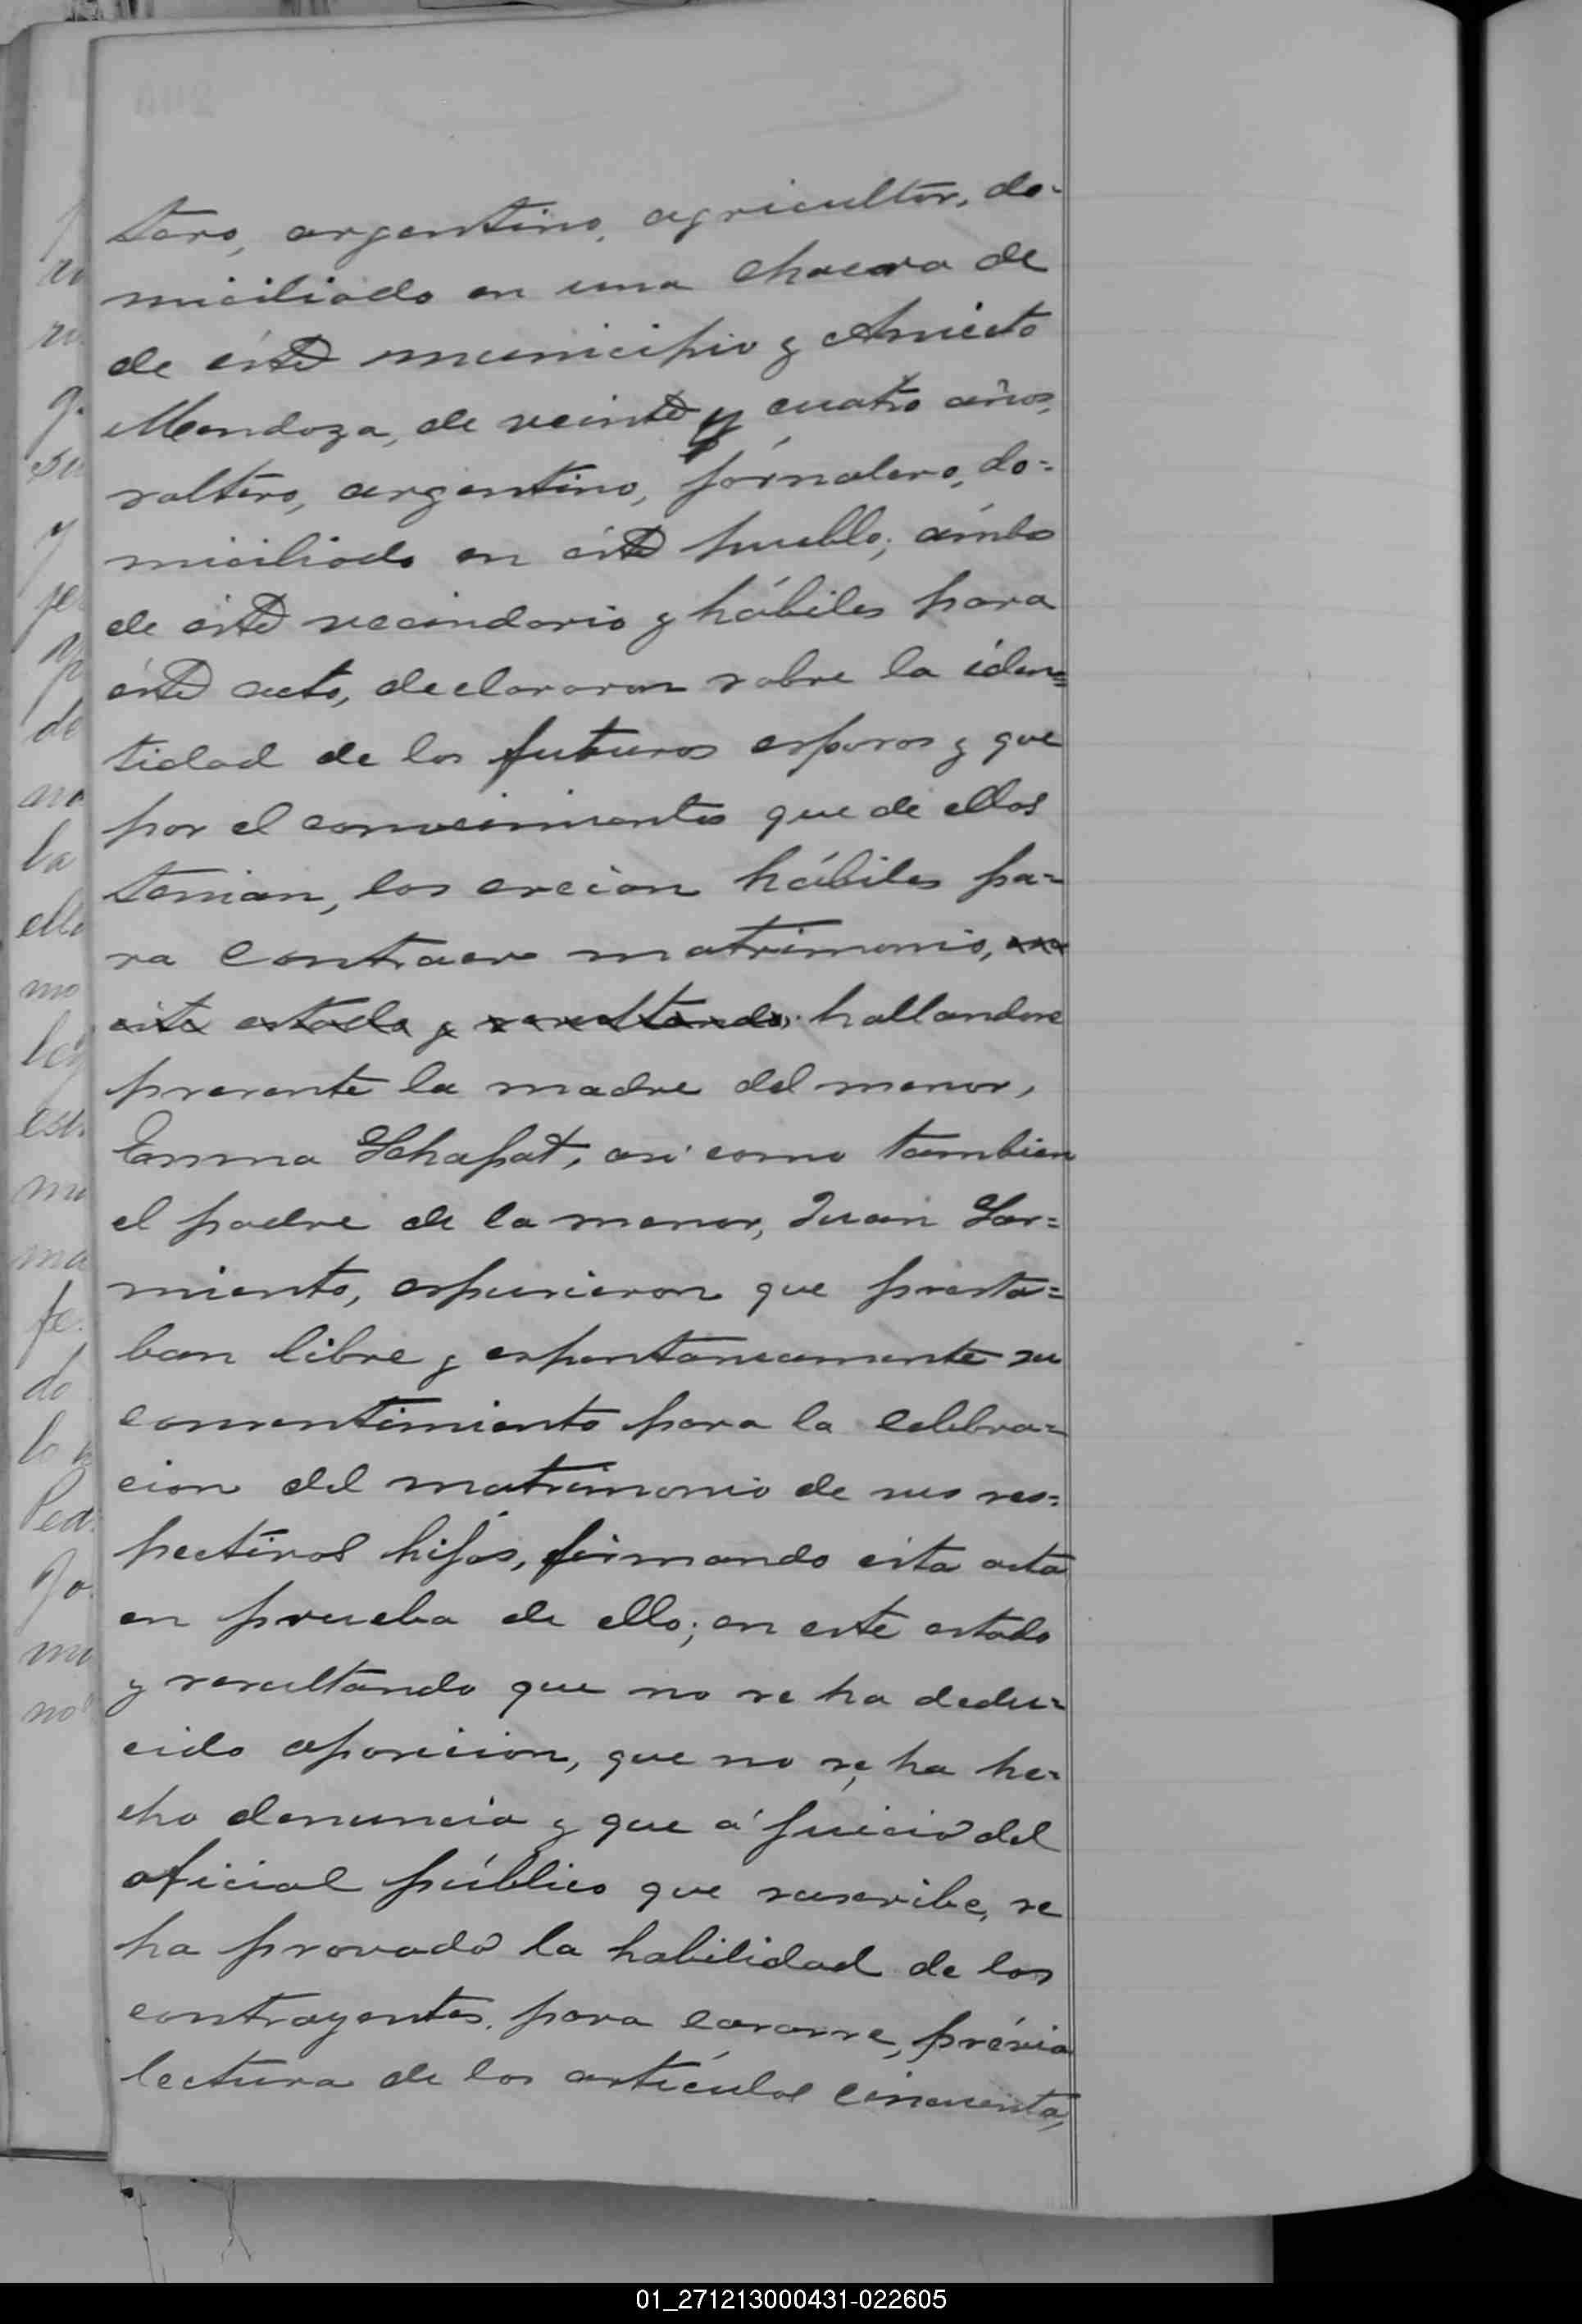 tero, argentino, agricultor, do-
miciliado en una chacra de
de éste municipio y Aniceto
Mendoza, de veinte y cuatro años,
soltero, argentino, jornalero, do=
miciliado en éste pueblo; ámbos
de éste vecindario y hábiles para
éste acto, declararon sobre la iden=
tidad de los futuros esposos y que
por el conocimiento que de ellos
tenian, los creian hábiles pa=
ra contraer matrimonio, en
este estado y resultando; hallandose
presente la madre del menor,
Emma Schapat, asi como tambien
el padre de la menor, Juan Sar=
miento, espusieron que presta=
ban libre y espontaneamente su
consentimiento para la celebra=
cion del matrimonio de sus res=
pectivos hijos, firmando esta acta
en prueba de ello; en este estado
y resultando que no se ha dedu=
cido oposicion, que no se ha he=
cho denuncia y que á juicio del
oficial público que suscribe, se
ha provado la habilidad de los
contrayentes para casarse, prévia
lectura de los artículos cincuenta,
01_271213000431-022605